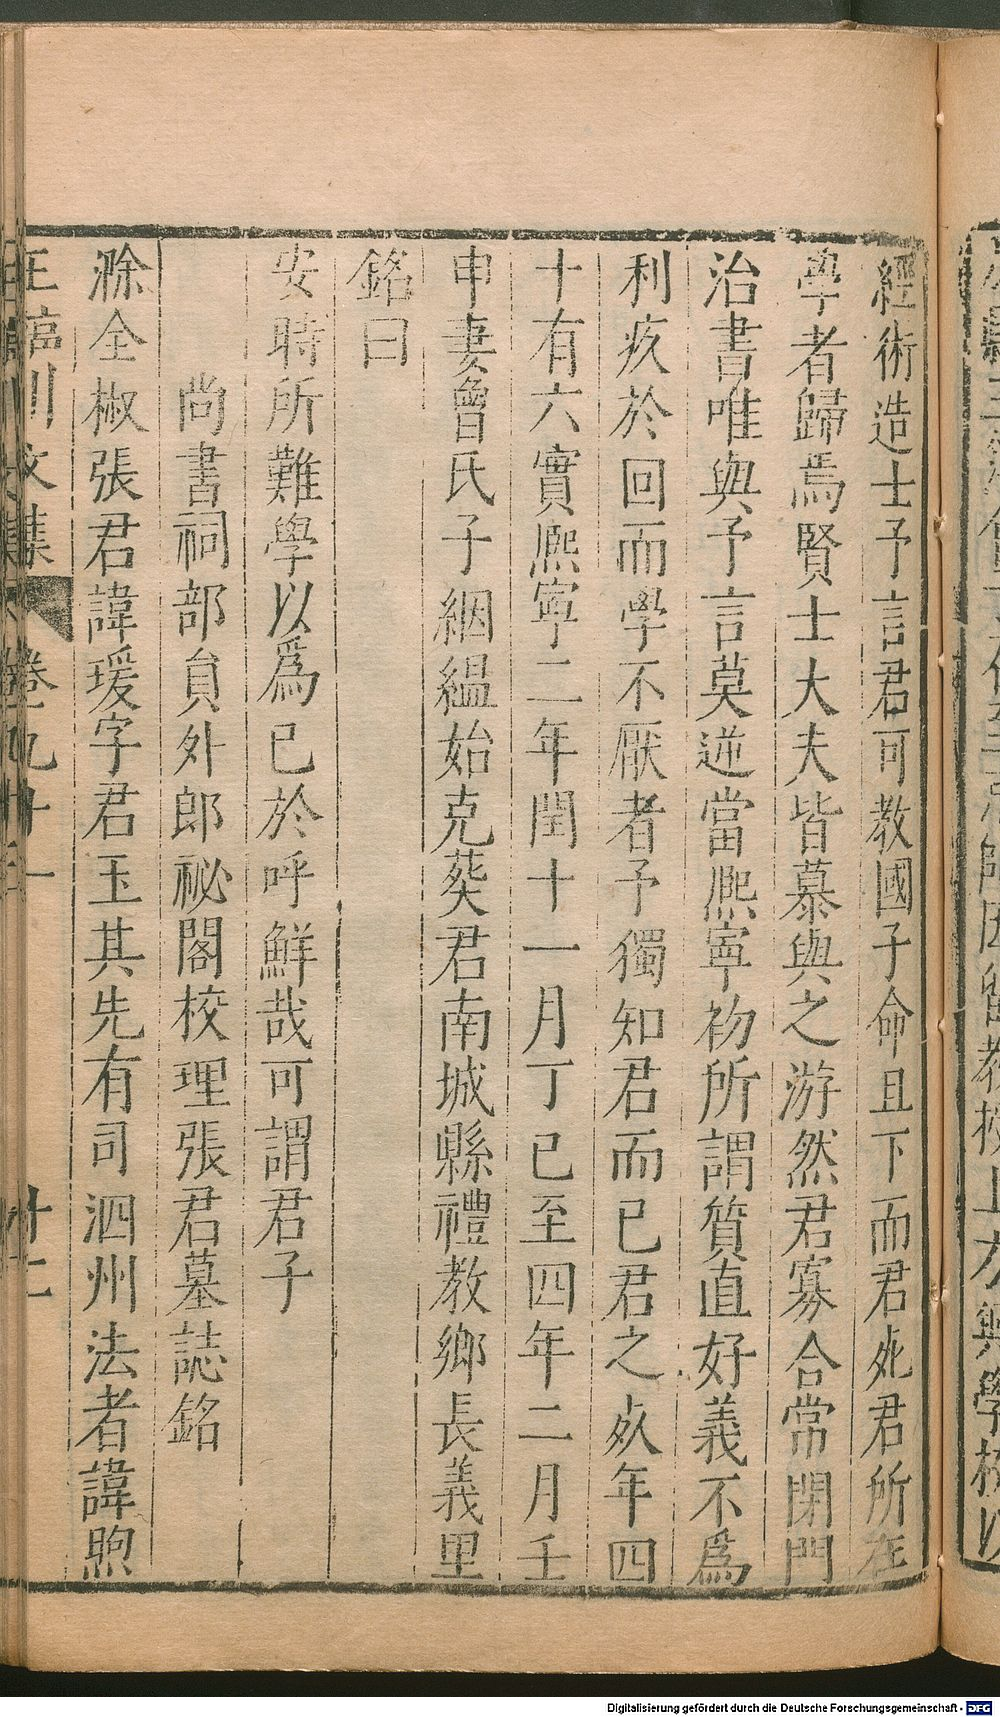 經術造士予言君可教國子命且下而君死君所在
學者歸焉賢士大夫皆慕與之游然君寡合常閉門
治書唯與予言莫逆當熈寧初所謂質直好義不爲
利疚於回而學不厭者予獨知君而已君之歿年四
十有六實熈寧二年閏十一月丁巳至四年二月壬
申妻曾氏子絪縕始克葬君南城縣禮教鄉長義里
銘曰
安時所難學以爲已於呼鮮哉可謂君子
尚書祠部貟外郎祕閣校理張君墓誌銘
滁全椒張君諱瑗字君玉其先有司泗州法者諱煦
王臨川文集 卷九十一 十二
Digitalisierung gefördert durch die Deutsche Forschungsgemeinschaft - DFG